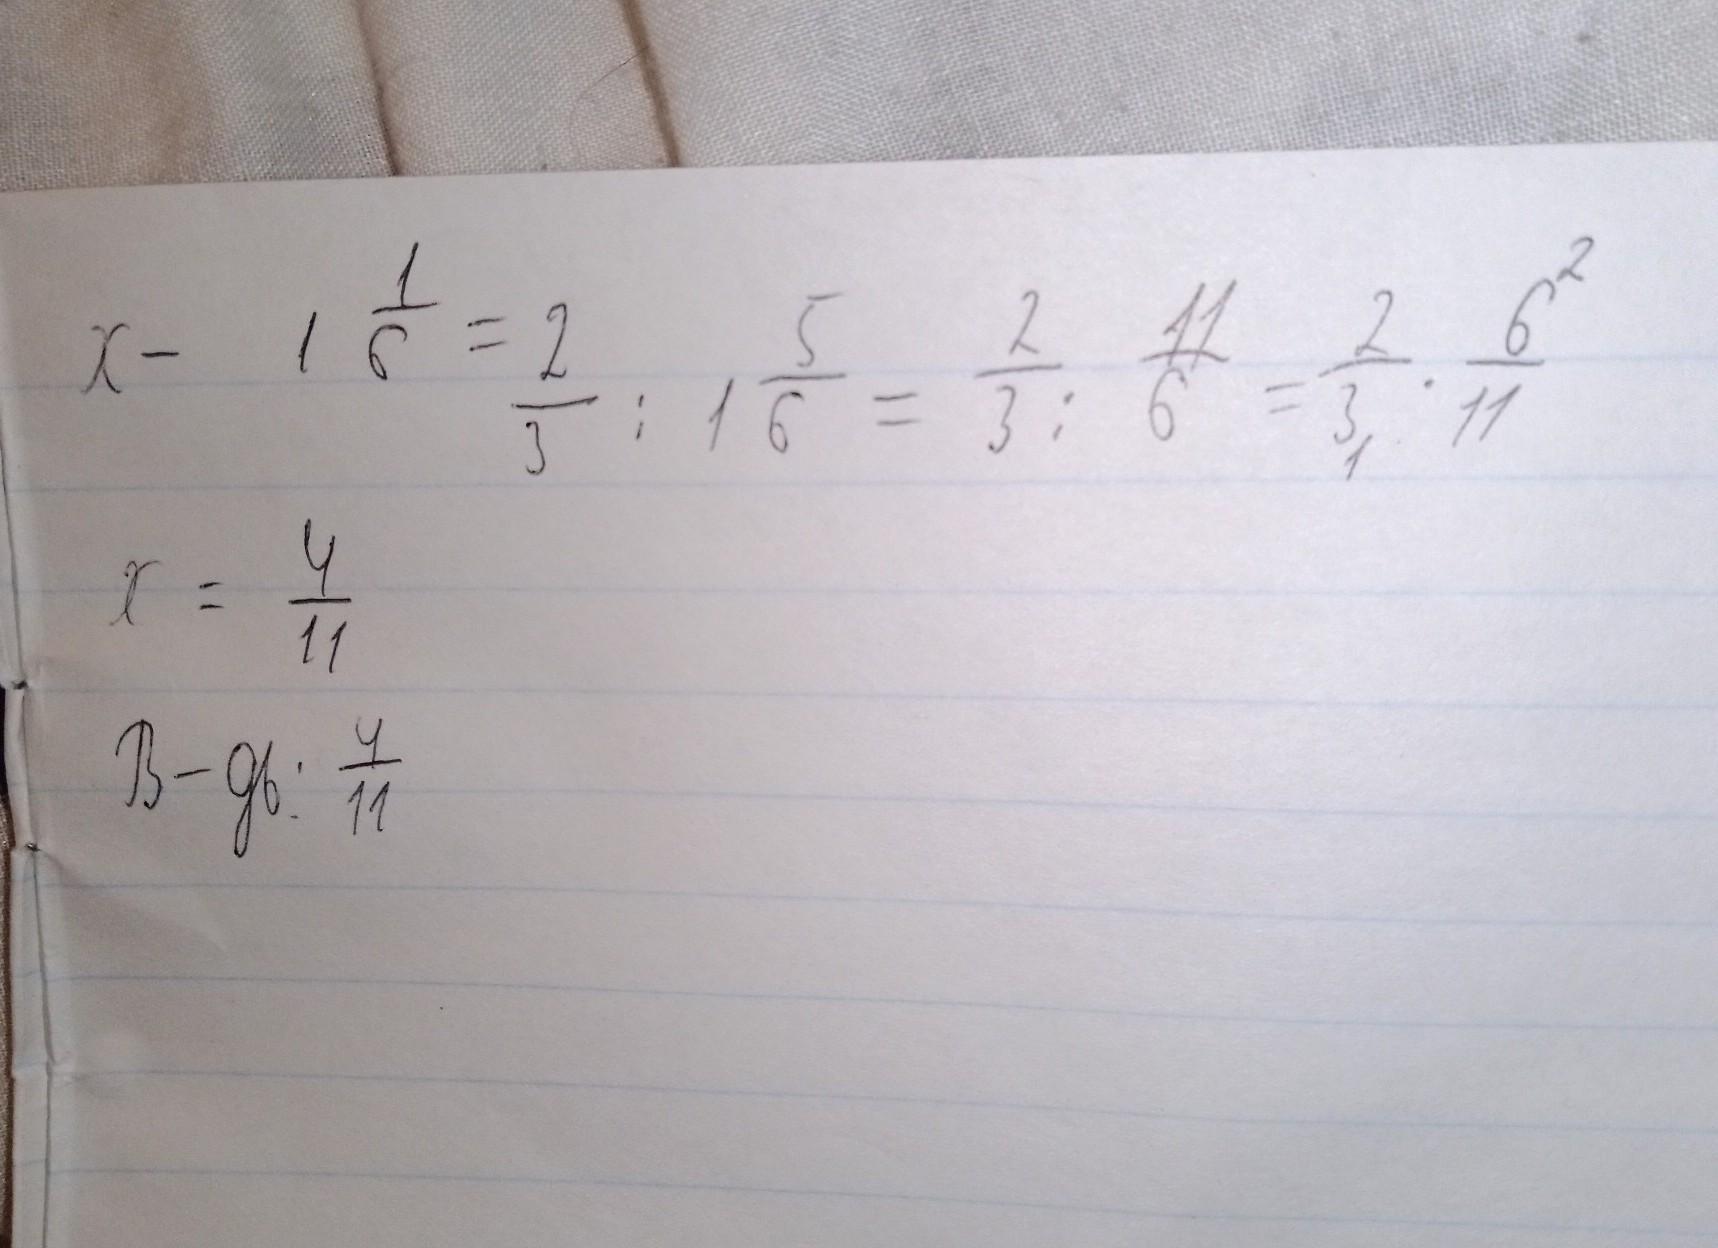 x - 1 1/6 = 2/3 : 1 5/6 = 2/3 : 11/6 = 2/3 1 · 6 2/11
x = 4/11
В-дь: 4/11